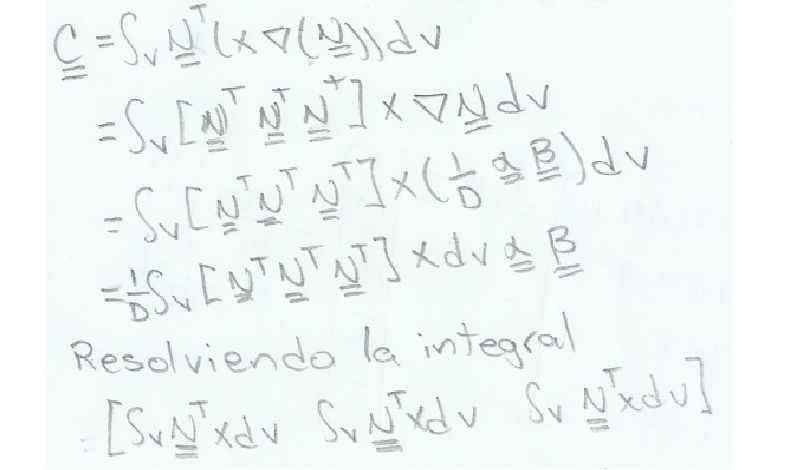 C = ∫v N^T (x ∇(N)) dv
= ∫v [N^T N^T N^T] x ∇N dv
= ∫v [N^T N^T N^T] x (1/D α B) dv
= 1/D ∫v [N^T N^T N^T] x dv α B
Resolviendo la integral
= [∫v N^T x dv ∫v N^T x dv ∫v N^T x dv]